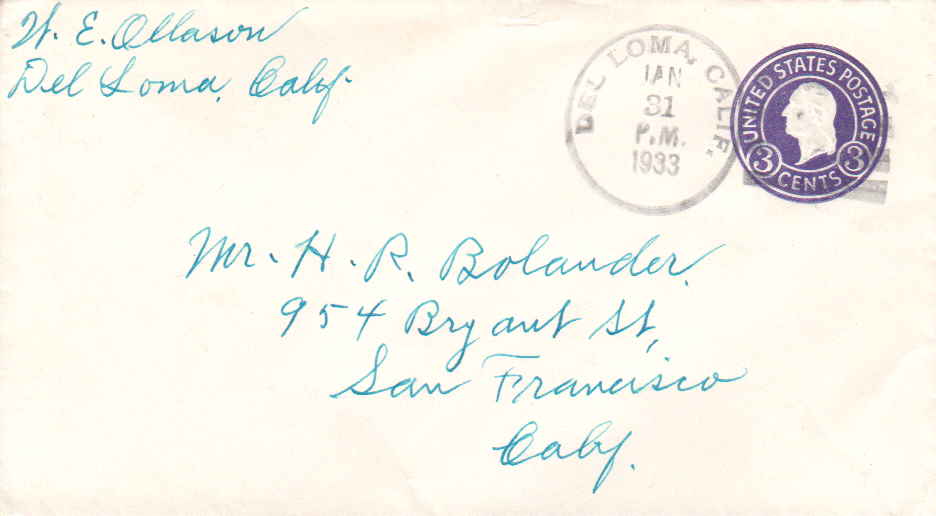 W. E. Ollason
Del Loma, Calif.
DEL LOMA, CALIF.
JAN
31
P.M.
1933
UNITED STATES POSTAGE
3 CENTS 3
Mr. H. R. Bolander
954 Bryant St,
San Francisco
Calif.